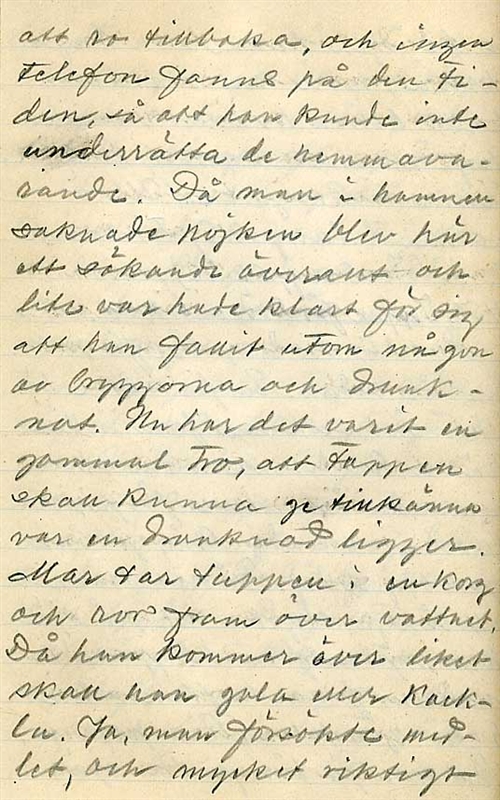 att ro tillbaka, och ingen
telefon fanns på den ti-
den, så att han kunde inte
underrätta de hemmava-
rande. Då man i hamnen
saknade pojken blev här
ett sökande överallt och
lite var hade klart för sig
att han fallit utom någon
av bryggorna och drunk-
nat. Nu har det varit en
gammal tro, att tuppen
skall kunna ge tillkänna
var en drunknad ligger.
Man tar tuppen i en korg
och ror fram över vattnet.
Då han kommer över liket
skall han gala eller kack-
la. Ja, man försökte med-
let, och mycket riktigt